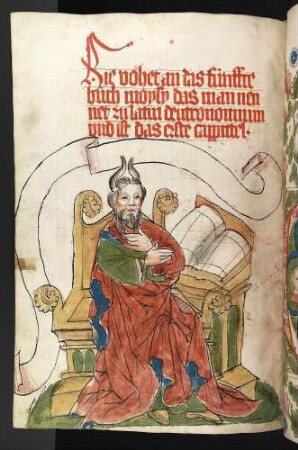 Hie vohet an das fúnffte
buch moysy das man nen
net zu latin deutronomium
und ist das erste cappittel.